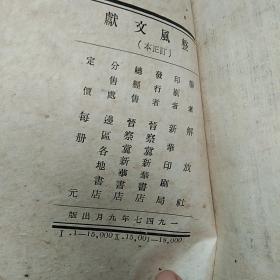 整風文獻
(訂正本)
編者 解放社
印刷者 新華印刷局
發行者 晉察冀新華書店
總經售 晉察冀新華書店
分售處 邊區各地書店
定價 每册 元
一九四七年九月出版
I.1—15,000 II.15,001—18,000